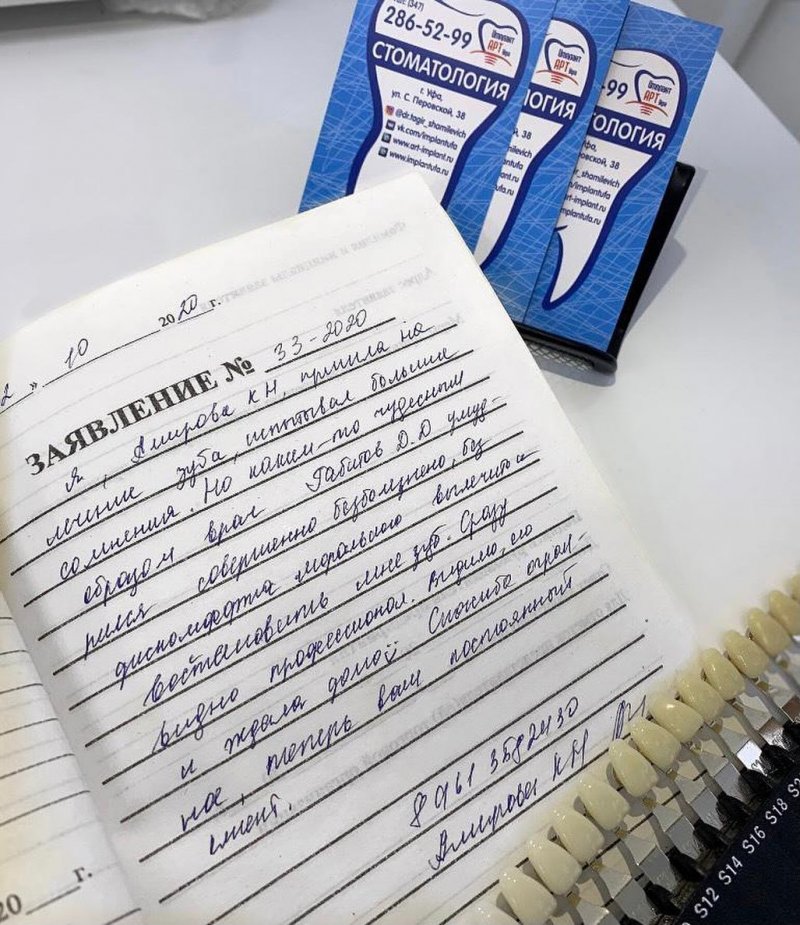 (347)
286-52-99
Имплант
АРТ
Уфа
СТОМАТОЛОГИЯ
г. Уфа,
ул. С. Перовской, 38
@dr.tagir_shamilevich
vk.com/implantufa
www.art-implant.ru
www.implantufa.ru
Имплант
АРТ
Уфа
ЛОГИЯ
й, 38
evich
tufa
nt.ru
fa.ru
-99
Имплант
АРТ
Уфа
ТОЛОГИЯ
Уфа,
ровской, 38
_shamilevich
m/implantufa
art-implant.ru
mplantufa.ru
2 » 10 2020 г.
ЗАЯВЛЕНИЕ № 33-2020
Я, Амирова К Н, пришла на
лечение зуба, испытывал большие
сомнения. Но каким-то чудесным
образом врач Габитов Д.Д умуд-
рился совершенно безболезнено, без
дискомфорта морального вылечить и
востановить мне зуб. Сразу
видно профессионал. Видимо, его
и ждала долго Спасибо огром-
ное, теперь ваш постоянный
клиент.
8 961 3582430
Амирова КН
20 г.
S12 S14 S16 S18 S